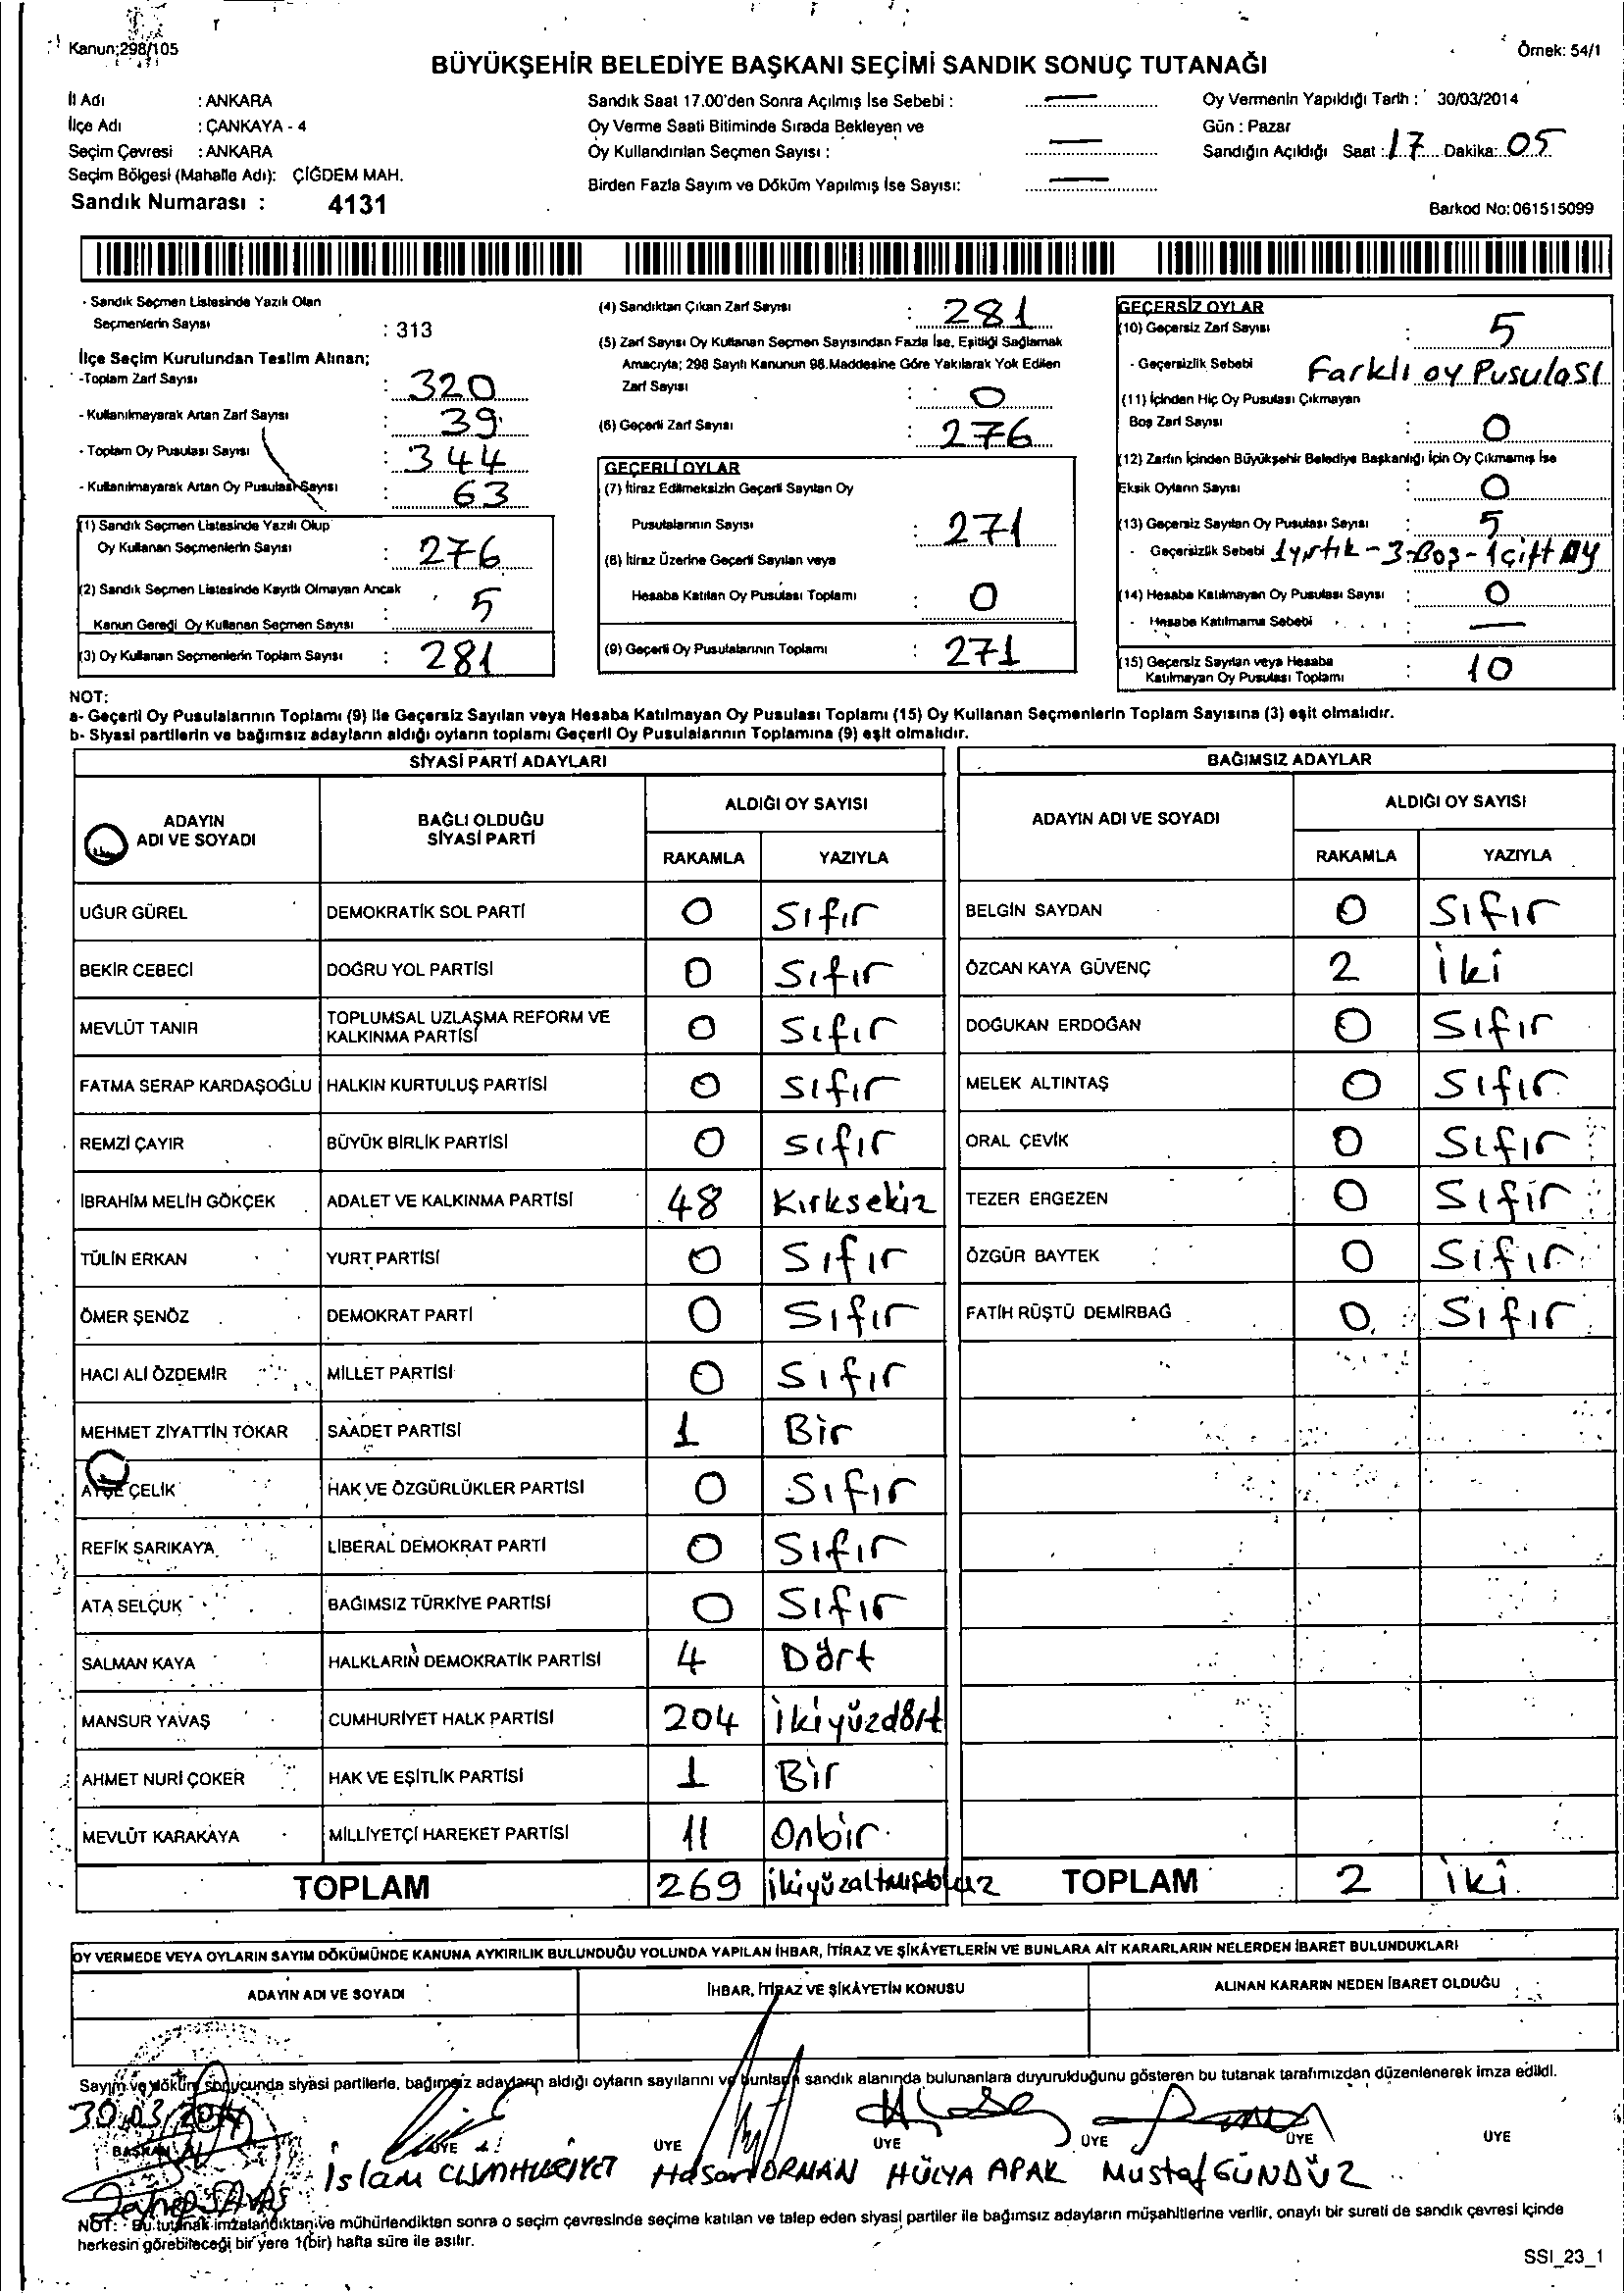 Kanun;298/105
Örnek: 54/1
BÜYÜKŞEHİR BELEDİYE BAŞKANI SEÇİMİ SANDIK SONUÇ TUTANAĞI
İl Adı : ANKARA
İlçe Adı : ÇANKAYA - 4
Seçim Çevresi : ANKARA
Seçim Bölgesi (Mahalle Adı): ÇİĞDEM MAH.
Sandık Numarası : 4131
Sandık Saat 17.00'den Sonra Açılmış İse Sebebi : —
Oy Verme Saati Bitiminde Sırada Bekleyen ve
Oy Kullandırılan Seçmen Sayısı : —
Birden Fazla Sayım ve Döküm Yapılmış İse Sayısı: —
Oy Vermenin Yapıldığı Tarih : 30/03/2014
Gün : Pazar
Sandığın Açıldığı Saat : 17 Dakika: 05
Barkod No: 061515099
- Sandık Seçmen Listesinde Yazılı Olan
Seçmenlerin Sayısı : 313
İlçe Seçim Kurulundan Teslim Alınan;
-Toplam Zarf Sayısı : 320
- Kullanılmayarak Artan Zarf Sayısı : 39
- Toplam Oy Pusulası Sayısı : 344
- Kullanılmayarak Artan Oy Pusulası Sayısı : 63
(1) Sandık Seçmen Listesinde Yazılı Olup
Oy Kullanan Seçmenlerin Sayısı : 276
(2) Sandık Seçmen Listesinde Kayıtlı Olmayan Ancak
Kanun Gereği Oy Kullanan Seçmen Sayısı : 5
(3) Oy Kullanan Seçmenlerin Toplam Sayısı : 281
(4) Sandıktan Çıkan Zarf Sayısı : 281
(5) Zarf Sayısı Oy Kullanan Seçmen Sayısından Fazla İse, Eşitliği Sağlamak
Amacıyla; 298 Sayılı Kanunun 98.Maddesine Göre Yakılarak Yok Edilen
Zarf Sayısı : 0
(6) Geçerli Zarf Sayısı : 276
GEÇERLİ OYLAR
(7) İtiraz Edilmeksizin Geçerli Sayılan Oy
Pusulalarının Sayısı : 271
(8) İtiraz Üzerine Geçerli Sayılan veya
Hesaba Katılan Oy Pusulası Toplamı : 0
(9) Geçerli Oy Pusulalarının Toplamı : 271
GEÇERSİZ OYLAR
(10) Geçersiz Zarf Sayısı : 5
- Geçersizlik Sebebi Farklı oy Pusulası
(11) İçinden Hiç Oy Pusulası Çıkmayan
Boş Zarf Sayısı : 0
(12) Zarfın İçinden Büyükşehir Belediye Başkanlığı İçin Oy Çıkmamış İse
Eksik Oyların Sayısı : 0
(13) Geçersiz Sayılan Oy Pusulası Sayısı : 5
- Geçersizlik Sebebi 1yırtık - 3-Boş - 1 çift oy
(14) Hesaba Katılmayan Oy Pusulası Sayısı : 0
- Hesaba Katılmama Sebebi : —
(15) Geçersiz Sayılan veya Hesaba
Katılmayan Oy Pusulası Toplamı : 10
NOT:
a- Geçerli Oy Pusulalarının Toplamı (9) ile Geçersiz Sayılan veya Hesaba Katılmayan Oy Pusulası Toplamı (15) Oy Kullanan Seçmenlerin Toplam Sayısına (3) eşit olmalıdır.
b- Siyasi partilerin ve bağımsız adayların aldığı oyların toplamı Geçerli Oy Pusulalarının Toplamına (9) eşit olmalıdır.
SİYASİ PARTİ ADAYLARI
ADAYIN ADI VE SOYADI BAĞLI OLDUĞU SİYASİ PARTİ ALDIĞI OY SAYISI
RAKAMLA YAZIYLA
UĞUR GÜREL DEMOKRATİK SOL PARTİ 0 Sıfır
BEKİR CEBECİ DOĞRU YOL PARTİSİ 0 Sıfır
MEVLÜT TANIR TOPLUMSAL UZLAŞMA REFORM VE KALKINMA PARTİSİ 0 Sıfır
FATMA SERAP KARDAŞOĞLU HALKIN KURTULUŞ PARTİSİ 0 Sıfır
REMZİ ÇAYIR BÜYÜK BİRLİK PARTİSİ 0 Sıfır
İBRAHİM MELİH GÖKÇEK ADALET VE KALKINMA PARTİSİ 48 Kırksekiz
TÜLİN ERKAN YURT PARTİSİ 0 Sıfır
ÖMER ŞENÖZ DEMOKRAT PARTİ 0 Sıfır
HACI ALİ ÖZDEMİR MİLLET PARTİSİ 0 Sıfır
MEHMET ZİYATTİN TOKAR SAADET PARTİSİ 1 Bir
AYŞE ÇELİK HAK VE ÖZGÜRLÜKLER PARTİSİ 0 Sıfır
REFİK SARIKAYA LİBERAL DEMOKRAT PARTİ 0 Sıfır
ATA SELÇUK BAĞIMSIZ TÜRKİYE PARTİSİ 0 Sıfır
SALMAN KAYA HALKLARIN DEMOKRATİK PARTİSİ 4 Dört
MANSUR YAVAŞ CUMHURİYET HALK PARTİSİ 204 İkiyüzdört
AHMET NURİ ÇOKER HAK VE EŞİTLİK PARTİSİ 1 Bir
MEVLÜT KARAKAYA MİLLİYETÇİ HAREKET PARTİSİ 11 Onbir
TOPLAM 269 ikiyüzaltmışdokuz
BAĞIMSIZ ADAYLAR
ADAYIN ADI VE SOYADI ALDIĞI OY SAYISI
RAKAMLA YAZIYLA
BELGİN SAYDAN 0 Sıfır
ÖZCAN KAYA GÜVENÇ 2 İki
DOĞUKAN ERDOĞAN 0 Sıfır
MELEK ALTINTAŞ 0 Sıfır
ORAL ÇEVİK 0 Sıfır
TEZER ERGEZEN 0 Sıfır
ÖZGÜR BAYTEK 0 Sıfır
FATİH RÜŞTÜ DEMİRBAĞ 0 Sıfır
TOPLAM 2 iki
OY VERMEDE VEYA OYLARIN SAYIM DÖKÜMÜNDE KANUNA AYKIRILIK BULUNDUĞU YOLUNDA YAPILAN İHBAR, İTİRAZ VE ŞİKÂYETLERİN VE BUNLARA AİT KARARLARIN NELERDEN İBARET BULUNDUKLARI
ADAYIN ADI VE SOYADI İHBAR, İTİRAZ VE ŞİKÂYETİN KONUSU ALINAN KARARIN NEDEN İBARET OLDUĞU
Sayım ve döküm sonucunda siyasi partilerle, bağımsız adayların aldığı oyların sayılarını ve bunların sandık alanında bulunanlara duyurulduğunu gösteren bu tutanak tarafımızdan düzenlenerek imza edildi.
30.03.2014
BAŞKAN ÜYE ÜYE ÜYE ÜYE ÜYE ÜYE
İslam CUMHURİYET Hasan ORMAN HÜLYA APAK Mustaf GÜNDÜZ
NOT: - Bu tutanak imzalandıktan ve mühürlendikten sonra o seçim çevresinde seçime katılan ve talep eden siyasi partiler ile bağımsız adayların müşahitlerine verilir, onaylı bir sureti de sandık çevresi içinde
herkesin görebileceği bir yere 1(bir) hafta süre ile asılır.
SSI_23_1